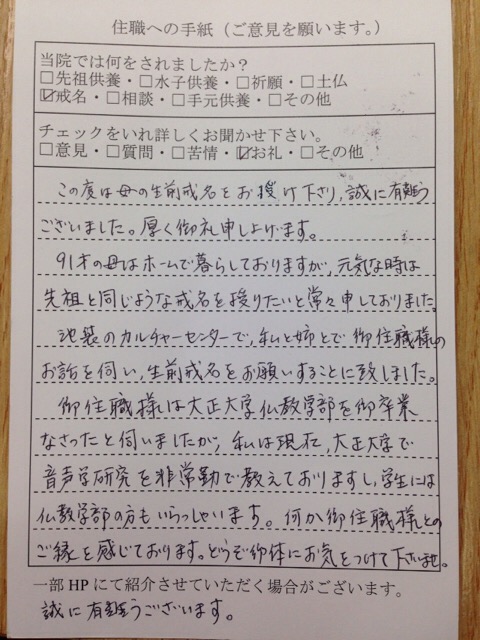 住職への手紙（ご意見を願います。）
当院では何をされましたか？
□先祖供養・□水子供養・□祈願・□土仏
☑戒名・□相談・□手元供養・□その他
チェックをいれ詳しくお聞かせ下さい。
□意見・□質問・□苦情・☑お礼・□その他
この度は母の生前戒名をお授け下さり，誠に有難う
ございました。厚く御礼申し上げます。
91才の母はホームで暮らしておりますが，元気な時は
先祖と同じような戒名を授りたいと常々申しておりました。
池袋のカルチャーセンターで，私と姉とで御住職様の
お話を伺い，生前戒名をお願いすることに致しました。
御住職様は大正大学仏教学部を御卒業
なさったと伺いましたが，私は現在，大正大学で
音声学研究を非常勤で教えておりますし，学生には
仏教学部の方もいらっしゃいます。何か御住職様との
ご縁を感じております。どうぞ御体にお気をつけて下さいませ。
一部HPにて紹介させていただく場合がございます。
誠に有難うございます。